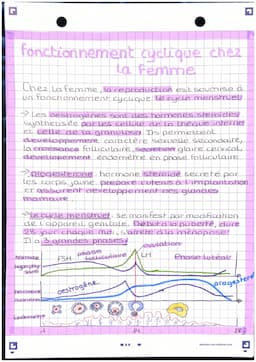 fonctionnement cyclique chez
la femme
Chez la femme, la reproduction est soumise à
un fonctionnement cyclique le cycle menstruel
→ Les oestrogènes sont des hormones stéroïdes
synthétisée par les cellule de la thèque interne
et celle de la granulosa. Ils permettent
développement caractère sexuelle secondaire,
la croissance folliculaire, sécrétion glaire cervicale,
développement endomètre en phase folliculaire
→ progestérone : hormone stéroïde secreté par
les corps jaune. prépare l'utérus à l'implantation
et assurent développement des glandes
mammaire
→ le cycle menstruel : se manifest par modification
de l'appareil génitale. Début à la puberté, dure
28j chaque mois, s'arrête à la ménopause.
Il a 3 grandes phases :
ovulation
phase
folliculaire
FSH
LH
Phase lutéale
oestrogène
progesterone
J1
28j